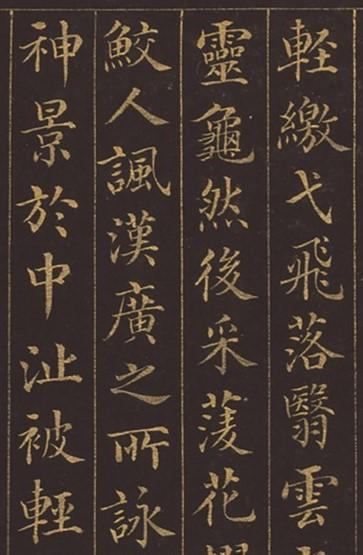 軽繳弋飛落翳雲
靈龜然後采蔆花
鮫人諷漢廣之所詠
神景於中沚被輕